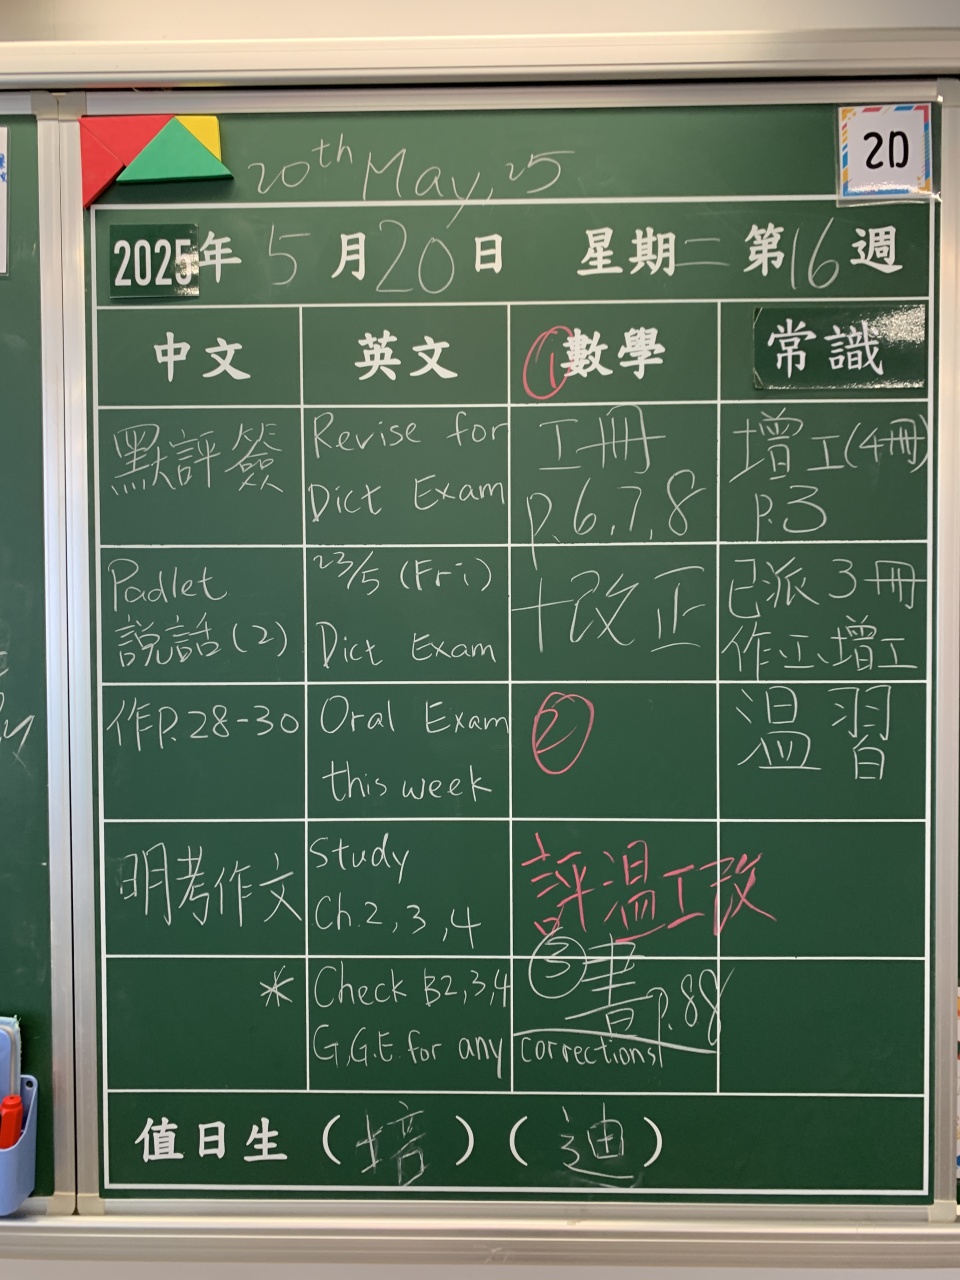 20th May, 25
20
2025年 5月20日 星期二 第16週
中文 英文 ①數學 常識
默評簽
Revise for
Dict Exam
工冊
p.6,7,8
增工(4冊)
P.3
Padlet
說話(2)
23/5 (Fri)
Dict Exam
+改正
已派3冊
作工、增工
作P.28-30
Oral Exam
this week
②
溫習
明考作文
Study
Ch.2,3,4
評溫工改
*
Check B2,3,4
G,G.E. for any corrections
③書p.88
值日生(培)(迪)